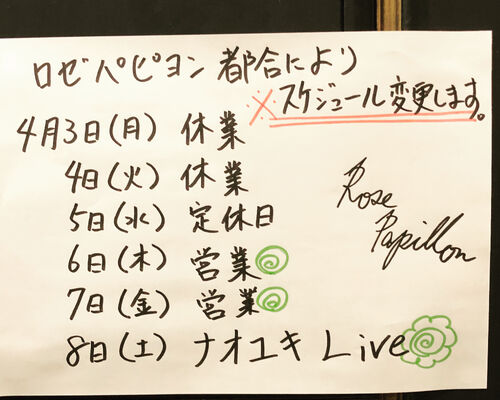 ロゼパピヨン 都合により
※スケジュール変更します。
4月3日(月) 休業
4日(火) 休業
5日(水) 定休日
6日(木) 営業
7日(金) 営業
8日(土) ナオユキ Live
Rose
Papillon